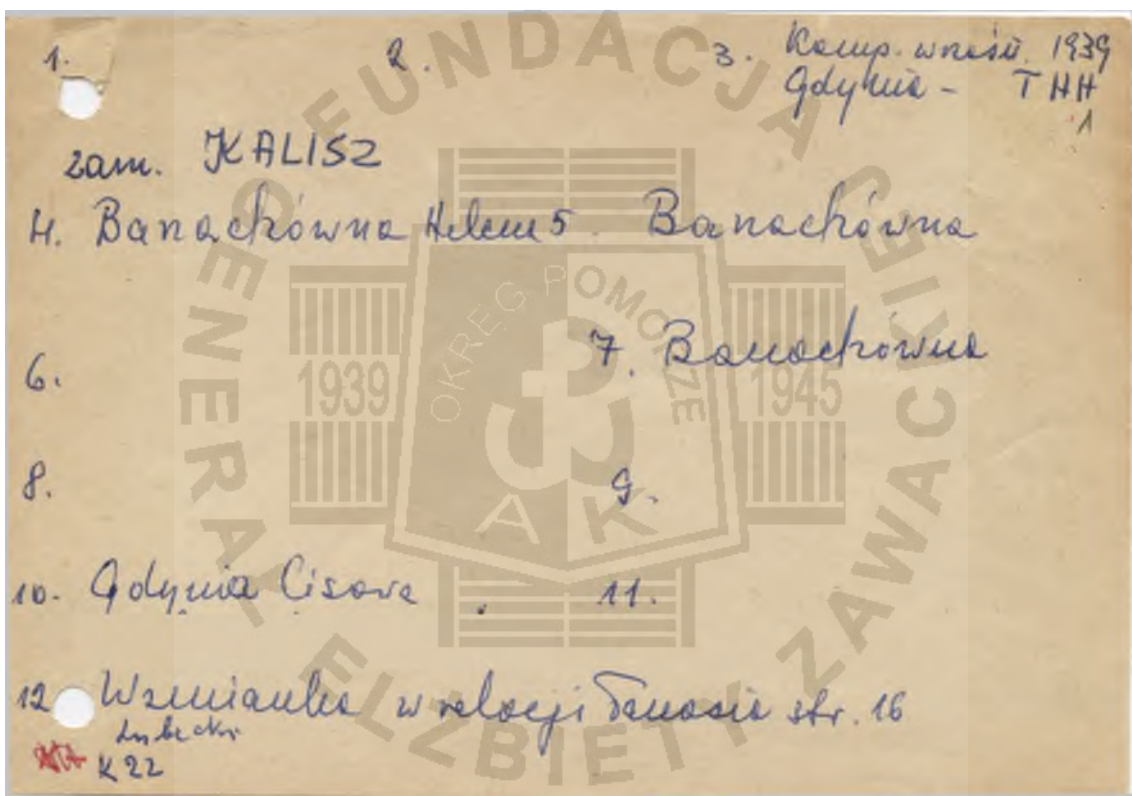 1. 2. 3. Kamp. wrześ. 1939
Gdynia - THH
1
zam. KALISZ
4. Banachówna Helena 5. Banachówna
6. 7. Banachówna
8. 9.
10. Gdynia Cisowa . 11.
12 Wzmianka w relacji str. 16
K 22
FUNDACJA GENERAŁ ELŻBIETY ZAWACKIEJ
OKRĘG POMORZE
1939 1945
AK